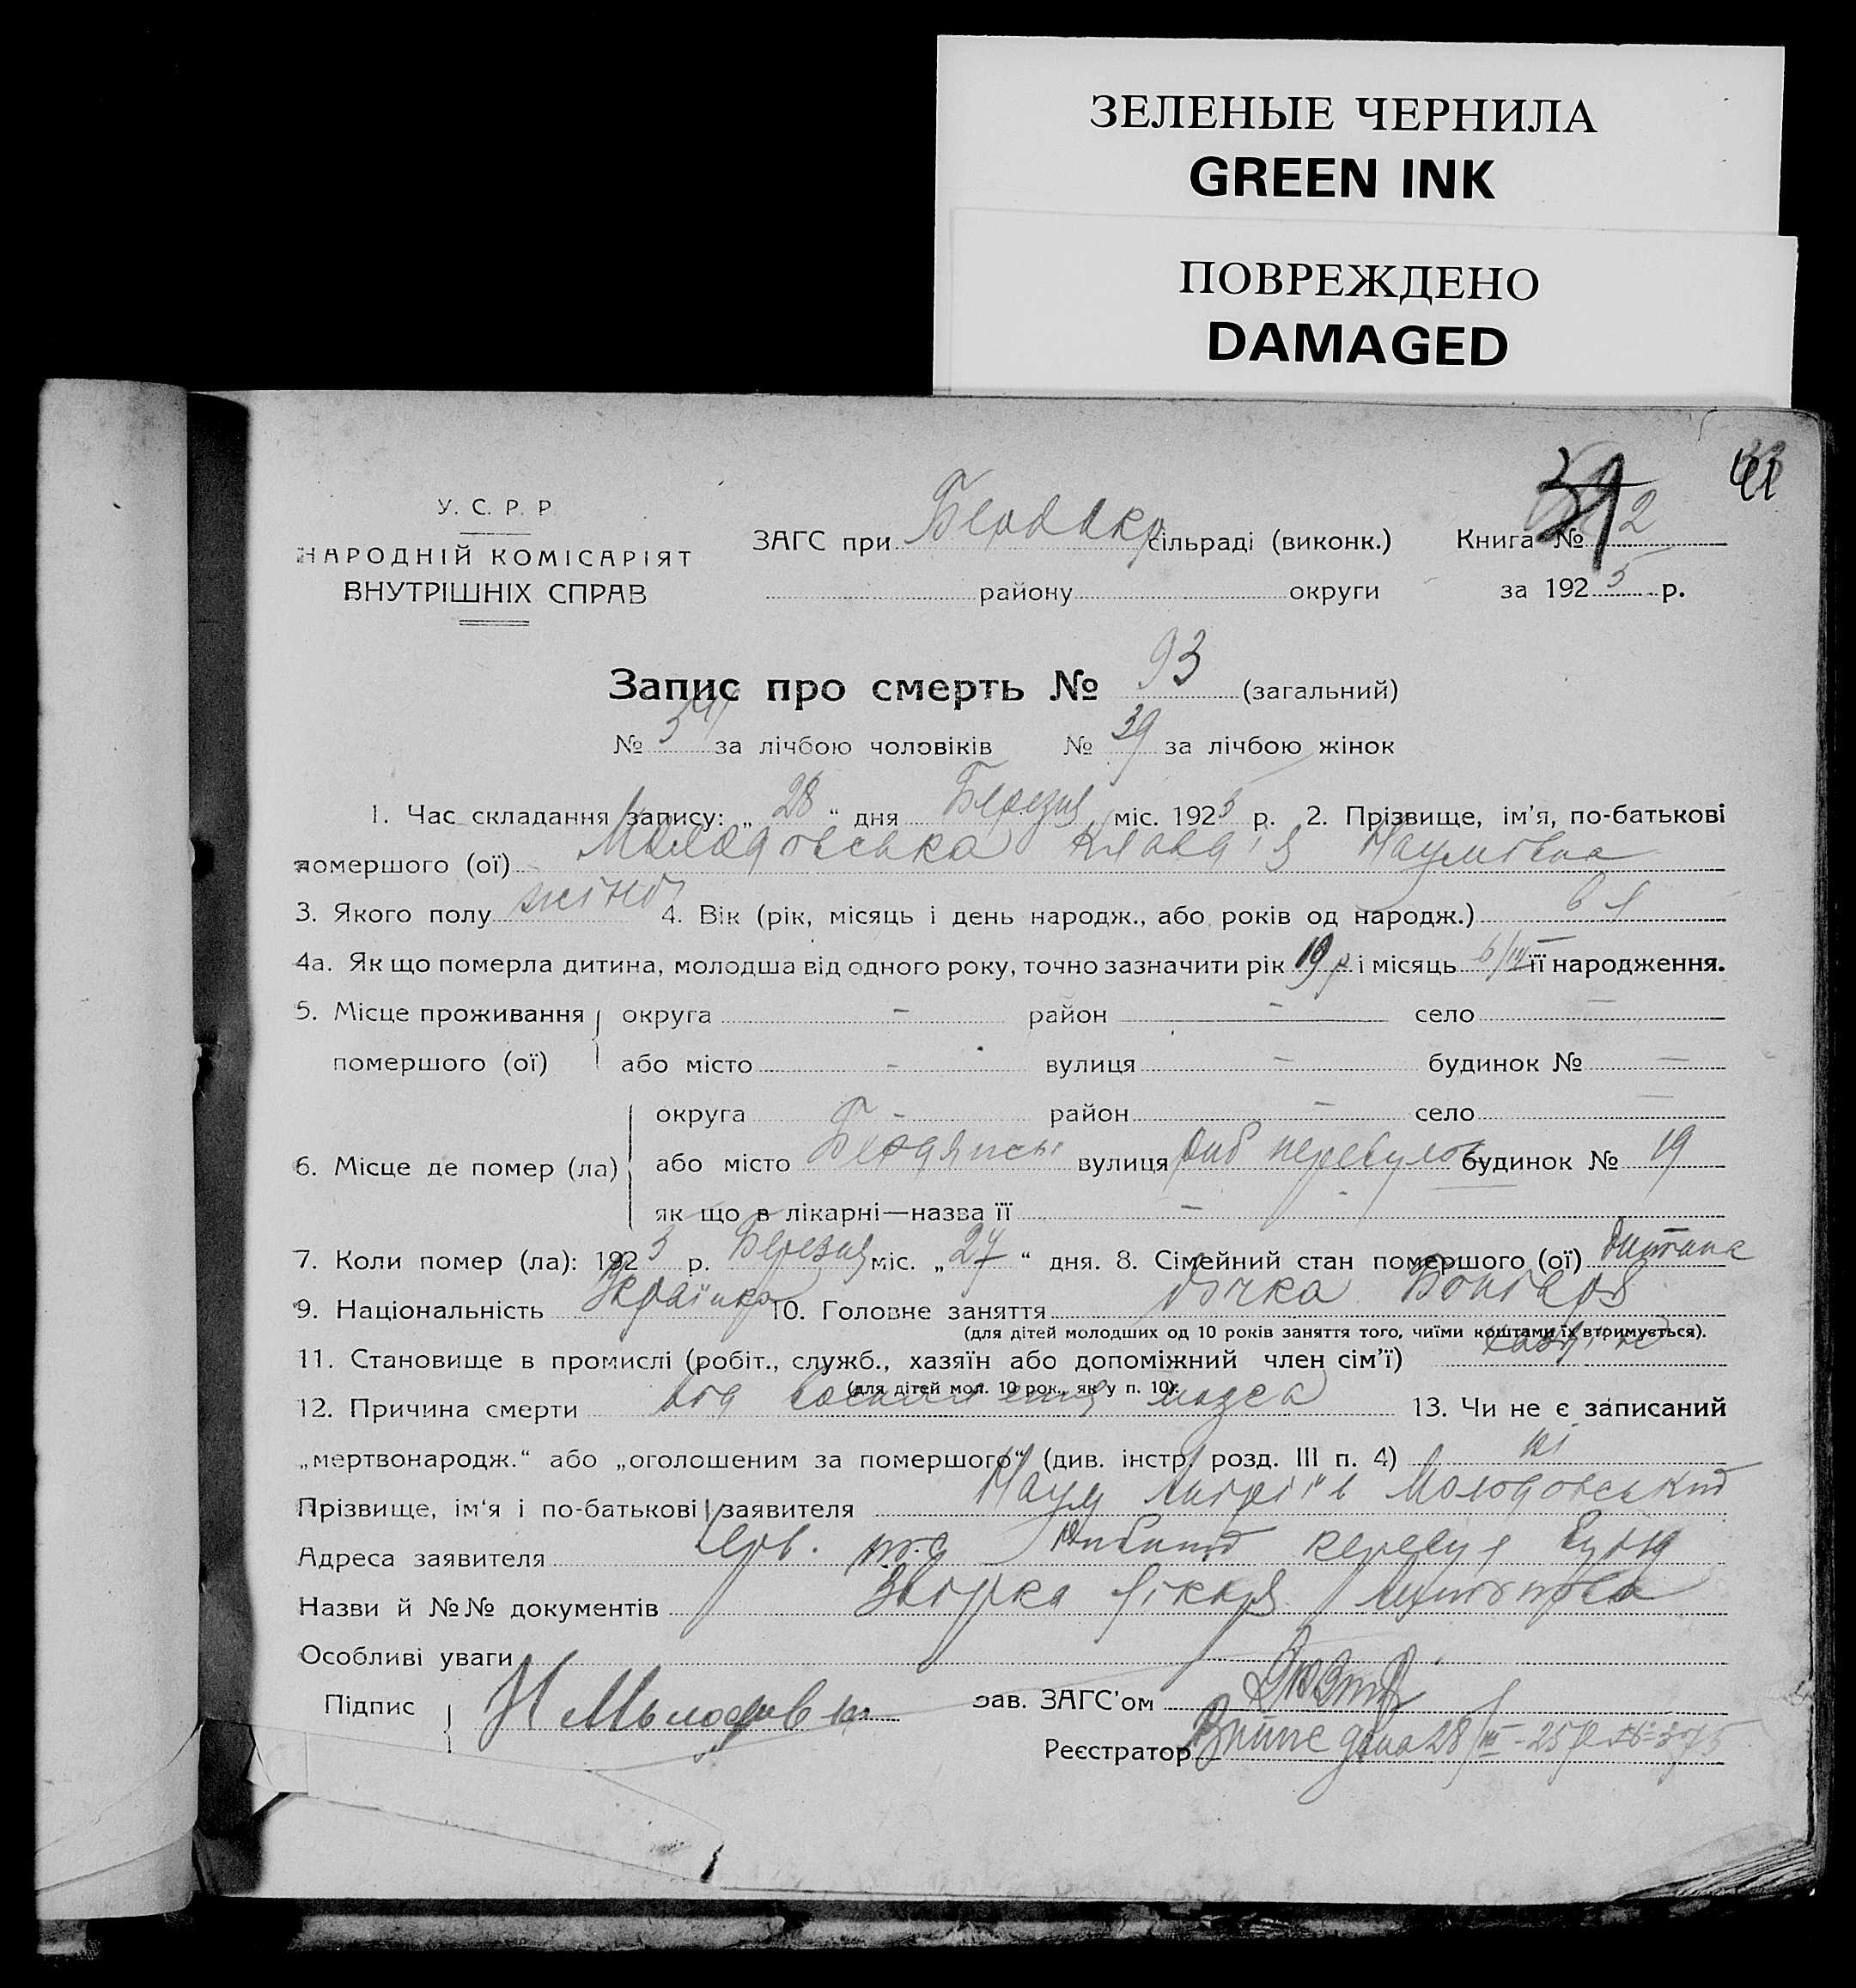 ЗЕЛЕНЫЕ ЧЕРНИЛА
GREEN INK
ПОВРЕЖДЕНО
DAMAGED
41
У. С. Р. Р.
НАРОДНІЙ КОМІСАРІЯТ
ВНУТРІШНІХ СПРАВ
ЗАГС при сільраді (виконк.) Книга № 2
району округи за 1925 р.
Запис про смерть № 93 (загальний)
№ за лічбою чоловіків № 39 за лічбою жінок
1. Час складання запису: „28“ дня Березня міс. 1925 р. 2. Прізвище, ім’я, по-батькові
помершого (ої) Молодовська Клавдія Наумовна
3. Якого полу жіноч 4. Вік (рік, місяць і день народж., або років од народж.) 6 л
4а. Як що померла дитина, молодша від одного року, точно зазначити рік 19 р і місяць її народження.
5. Місце проживання округа – район – село –
помершого (ої) або місто – вулиця – будинок № –
округа – район – село –
6. Місце де помер (ла) або місто Бердянськ вулиця перевулок будинок № 19
як що в лікарні—назва її –
7. Коли помер (ла): 1925 р. Березня міс. „27“ дня. 8. Сімейний стан помершого (ої) дитина
9. Національність Українка 10. Головне заняття дочка
(для дітей молодших од 10 років заняття того, чиїми коштами їх втримується).
11. Становище в промислі (робіт., служб., хазяїн або допоміжний член сім’ї)
(для дітей мол. 10 рок., як у п. 10).
12. Причина смерти від воспаления мозга 13. Чи не є записаний
„мертвонародж.“ або „оголошеним за помершого“ (див. інстр. розд. III п. 4) ні
Прізвище, ім‘я і по-батькові заявителя Наум Молодовський
Адреса заявителя
Назви й №№ документів лікаря
Особливі уваги
Підпис зав. ЗАГС’ом
Реєстратор